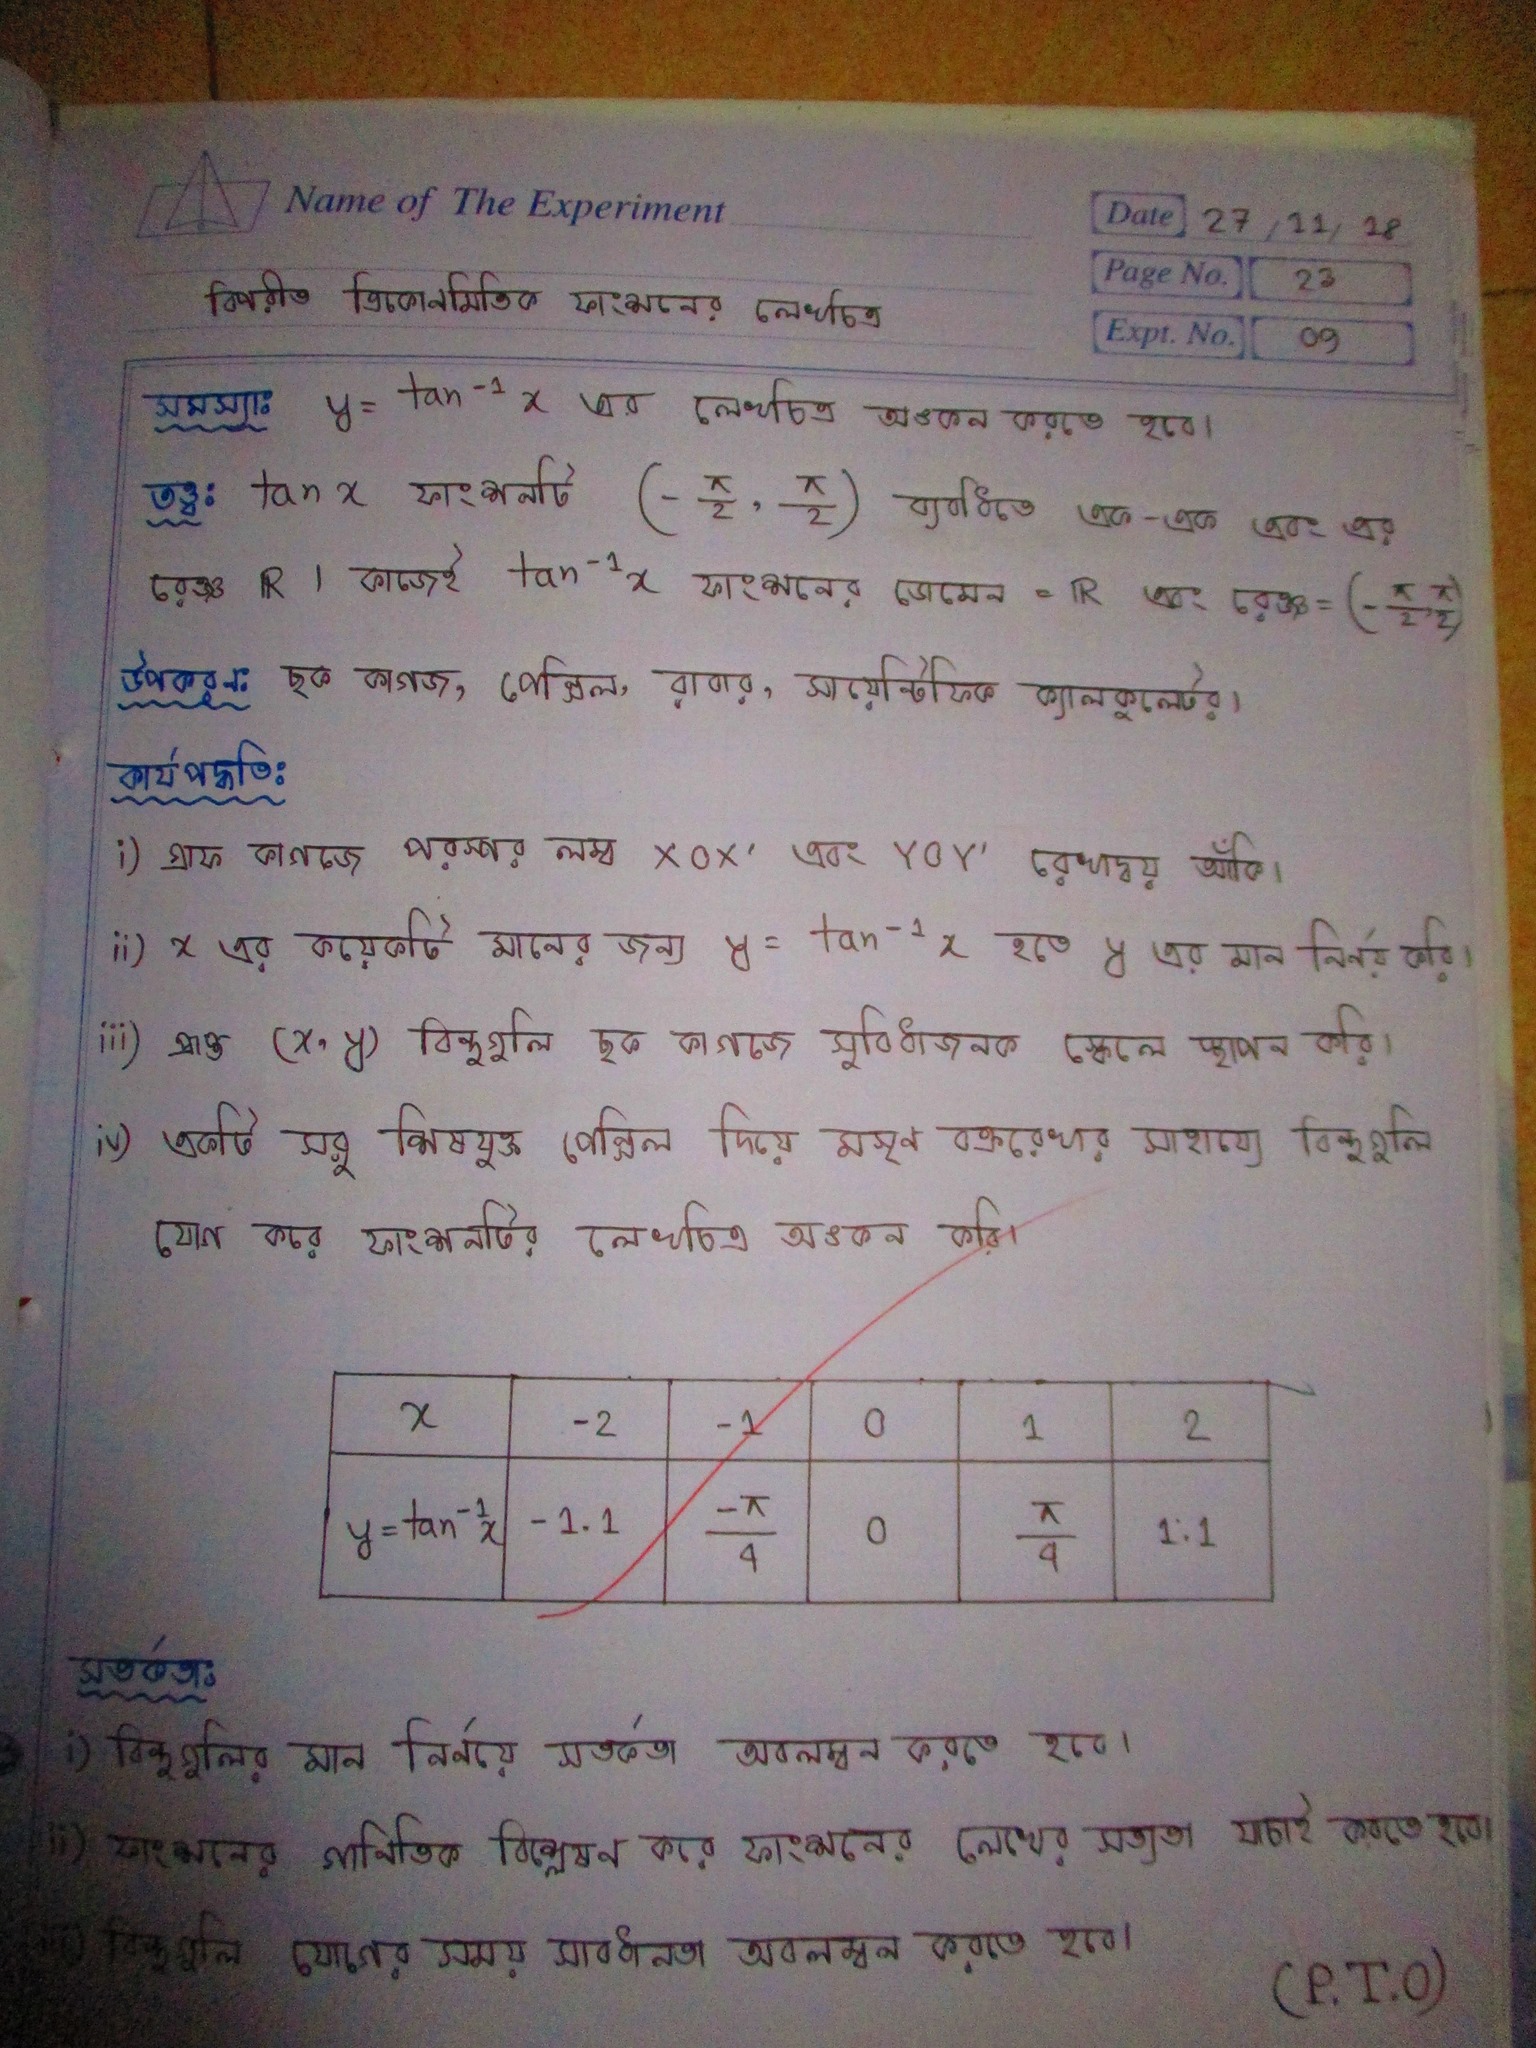 Name of The Experiment
Date 27/11/18
Page No. 23
Expt. No. 09
বিপরীত ত্রিকোনমিতিক ফাংশনের লেখচিত্র
সমস্যাঃ y = tan⁻¹ x এর লেখচিত্র অঙকন করতে হবে।
তত্ত্বঃ tan x ফাংশনটি (-π/2, π/2) ব্যবধিতে এক-এক এবং এর
রেঞ্জ ℝ । কাজেই tan⁻¹x ফাংশনের ডোমেন = ℝ এবং রেঞ্জ = (-π/2, π/2)
উপকরনঃ ছক কাগজ, পেন্সিল, রাবার, সায়েন্টিফিক ক্যালকুলেটর।
কার্যপদ্ধতিঃ
i) গ্রাফ কাগজে পরস্পর লম্ব XOX' এবং YOY' রেখাদ্বয় আঁকি।
ii) x এর কয়েকটি মানের জন্য y = tan⁻¹ x হতে y এর মান নির্নয় করি।
iii) প্রাপ্ত (x, y) বিন্দুগুলি ছক কাগজে সুবিধাজনক স্কেলে স্থাপন করি।
iv) একটি সরু শিষযুক্ত পেন্সিল দিয়ে মসৃন বক্ররেখার সাহায্যে বিন্দুগুলি
যোগ করে ফাংশনটির লেখচিত্র অঙকন করি।
x -2 -1 0 1 2
y = tan⁻¹x -1.1 -π/4 0 π/4 1.1
সতর্কতাঃ
i) বিন্দুগুলির মান নির্নয়ে সতর্কতা অবলম্বন করতে হবে।
ii) ফাংশনের গানিতিক বিশ্লেষন করে ফাংশনের লেখের সত্যতা যাচাই করতে হবে।
iii) বিন্দুগুলি যোগের সময় সাবধানতা অবলম্বন করতে হবে।
(P.T.O)